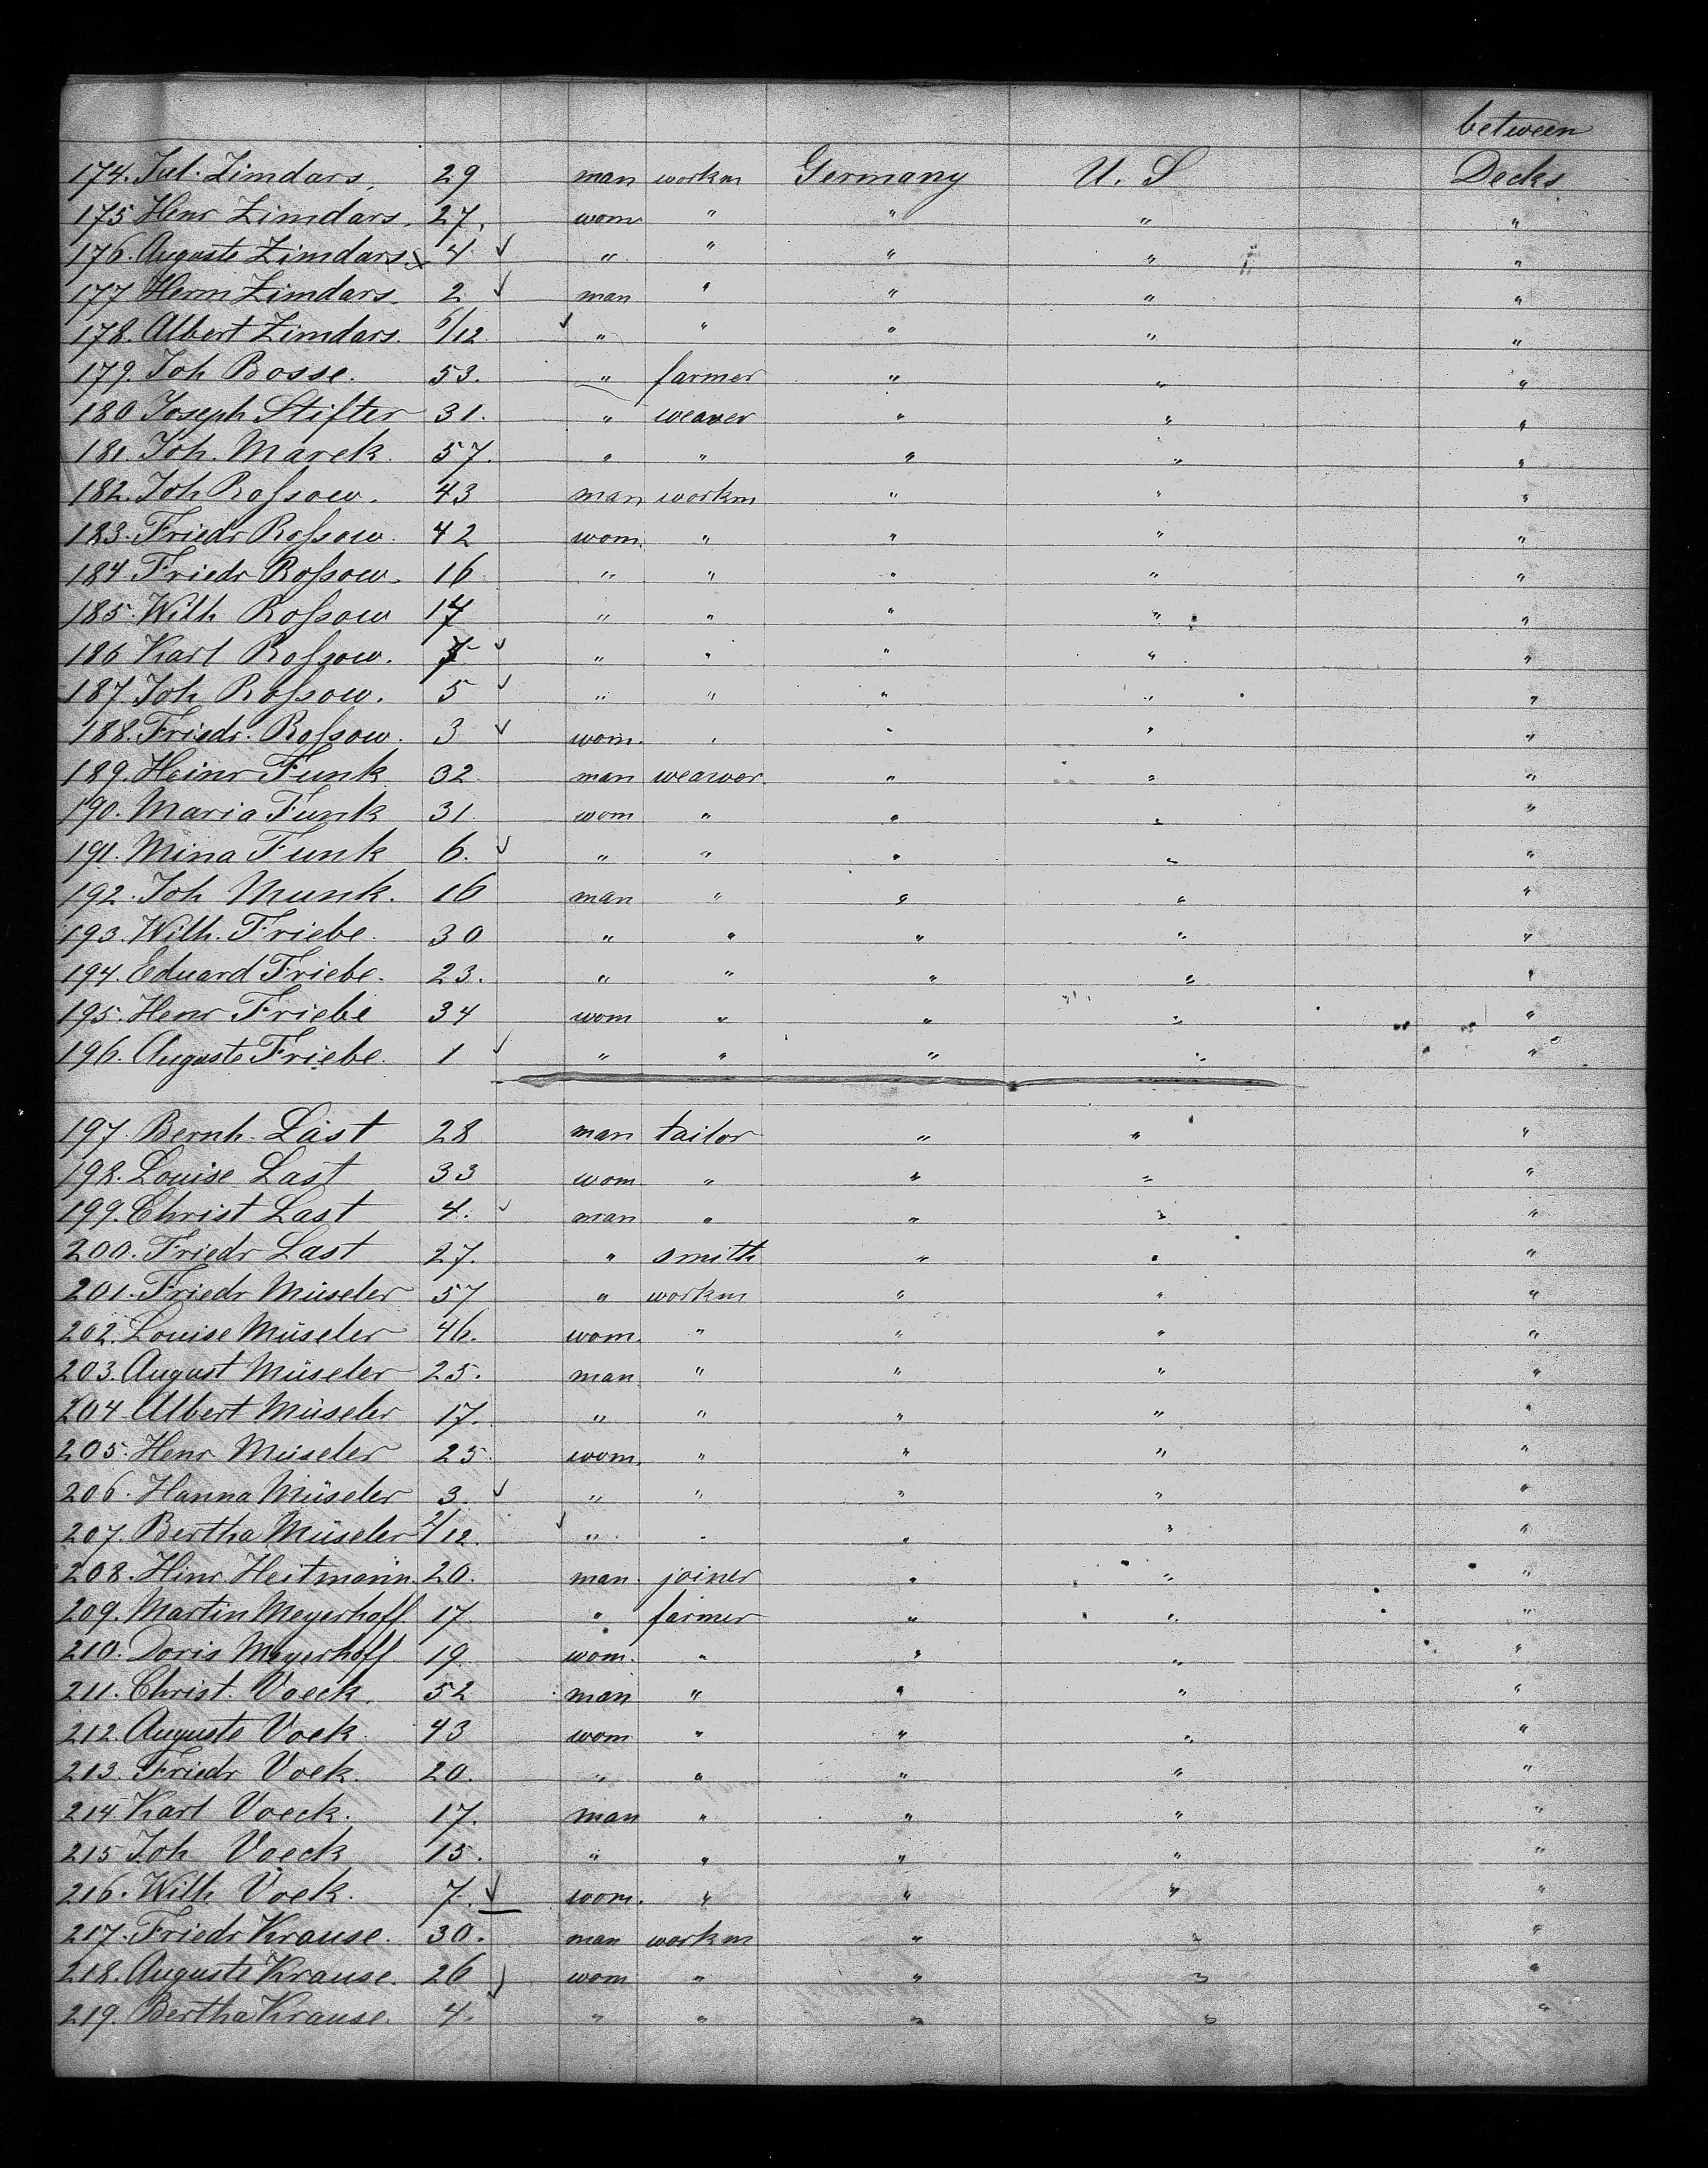 between
174. Jul. Zimdars, 29 man workm Germany U. S Decks
175 Henr Zimdars, 27, wom " " " "
176. Auguste Zimdars 4 " " " " "
177 Herm Zimdars. 2 man " " " "
178. Albert Zimdars. 6/12 " " " " "
179. Joh Bosse. 53. " farmer " " "
180 Joseph Stifter 31. " weaver " " "
181. Joh. Marek. 57. " " " " "
182. Joh Roſsow. 43 man workm " " "
183. Friedr Roſsow. 42 wom. " " " "
184 Friedr Roſsow. 16 " " " " "
185. Wilh Roſsow " " " " "
186 Karl Roſsow. " " " " "
187. Joh Roſsow. 5 " " " " "
188. Friedr. Roſsow. 3 wom. " " " "
189. Heinr Funk 32 man weawer. " " "
190. Maria Funk 31. wom " " " "
191. Mina Funk 6. " " " " "
192. Joh Munk. 16 man " " " "
193. Wilh. Friebe. 30 " " " " "
194. Eduard Friebe. 23. " " " " "
195. Henr Friebe 34 wom " " " "
196. Auguste Friebe. 1 " " " " "
197. Bernh. Last 28 man tailor " " "
198. Louise Last 33 wom " " " "
199. Christ Last 4. man " " " "
200. Friedr Last 27. " smith " " "
201. Friedr Müseler 57 " workm " " "
202. Louise Müseler 46. wom. " " " "
203. August Müseler 25. man " " " "
204 Albert Müseler 17. " " " " "
205. Henr Müseler 25. wom. " " " "
206. Hanna Müseler 3. " " " " "
207. Bertha Müseler 2/12. " " " " "
208. Hinr Heitmann. 20. man. joiner " " "
209. Martin Meyerhoff 17 " farmer " " "
210. Doris Meyerhoff 19. wom. " " " "
211. Christ. Voeck. 52 man " " " "
212. Auguste Voek. 43 wom " " " "
213. Friedr Voek. 20. " " " " "
214 Karl Voeck. 17. man " " " "
215 Joh Voeck 15. " " " " "
216. Wilh Voek. 7. wom. " " " "
217. Friedr Krause. 30. man workm " " "
218. Auguste Krause. 26 wom " " " "
219. Bertha Krause. 4. " " " " "